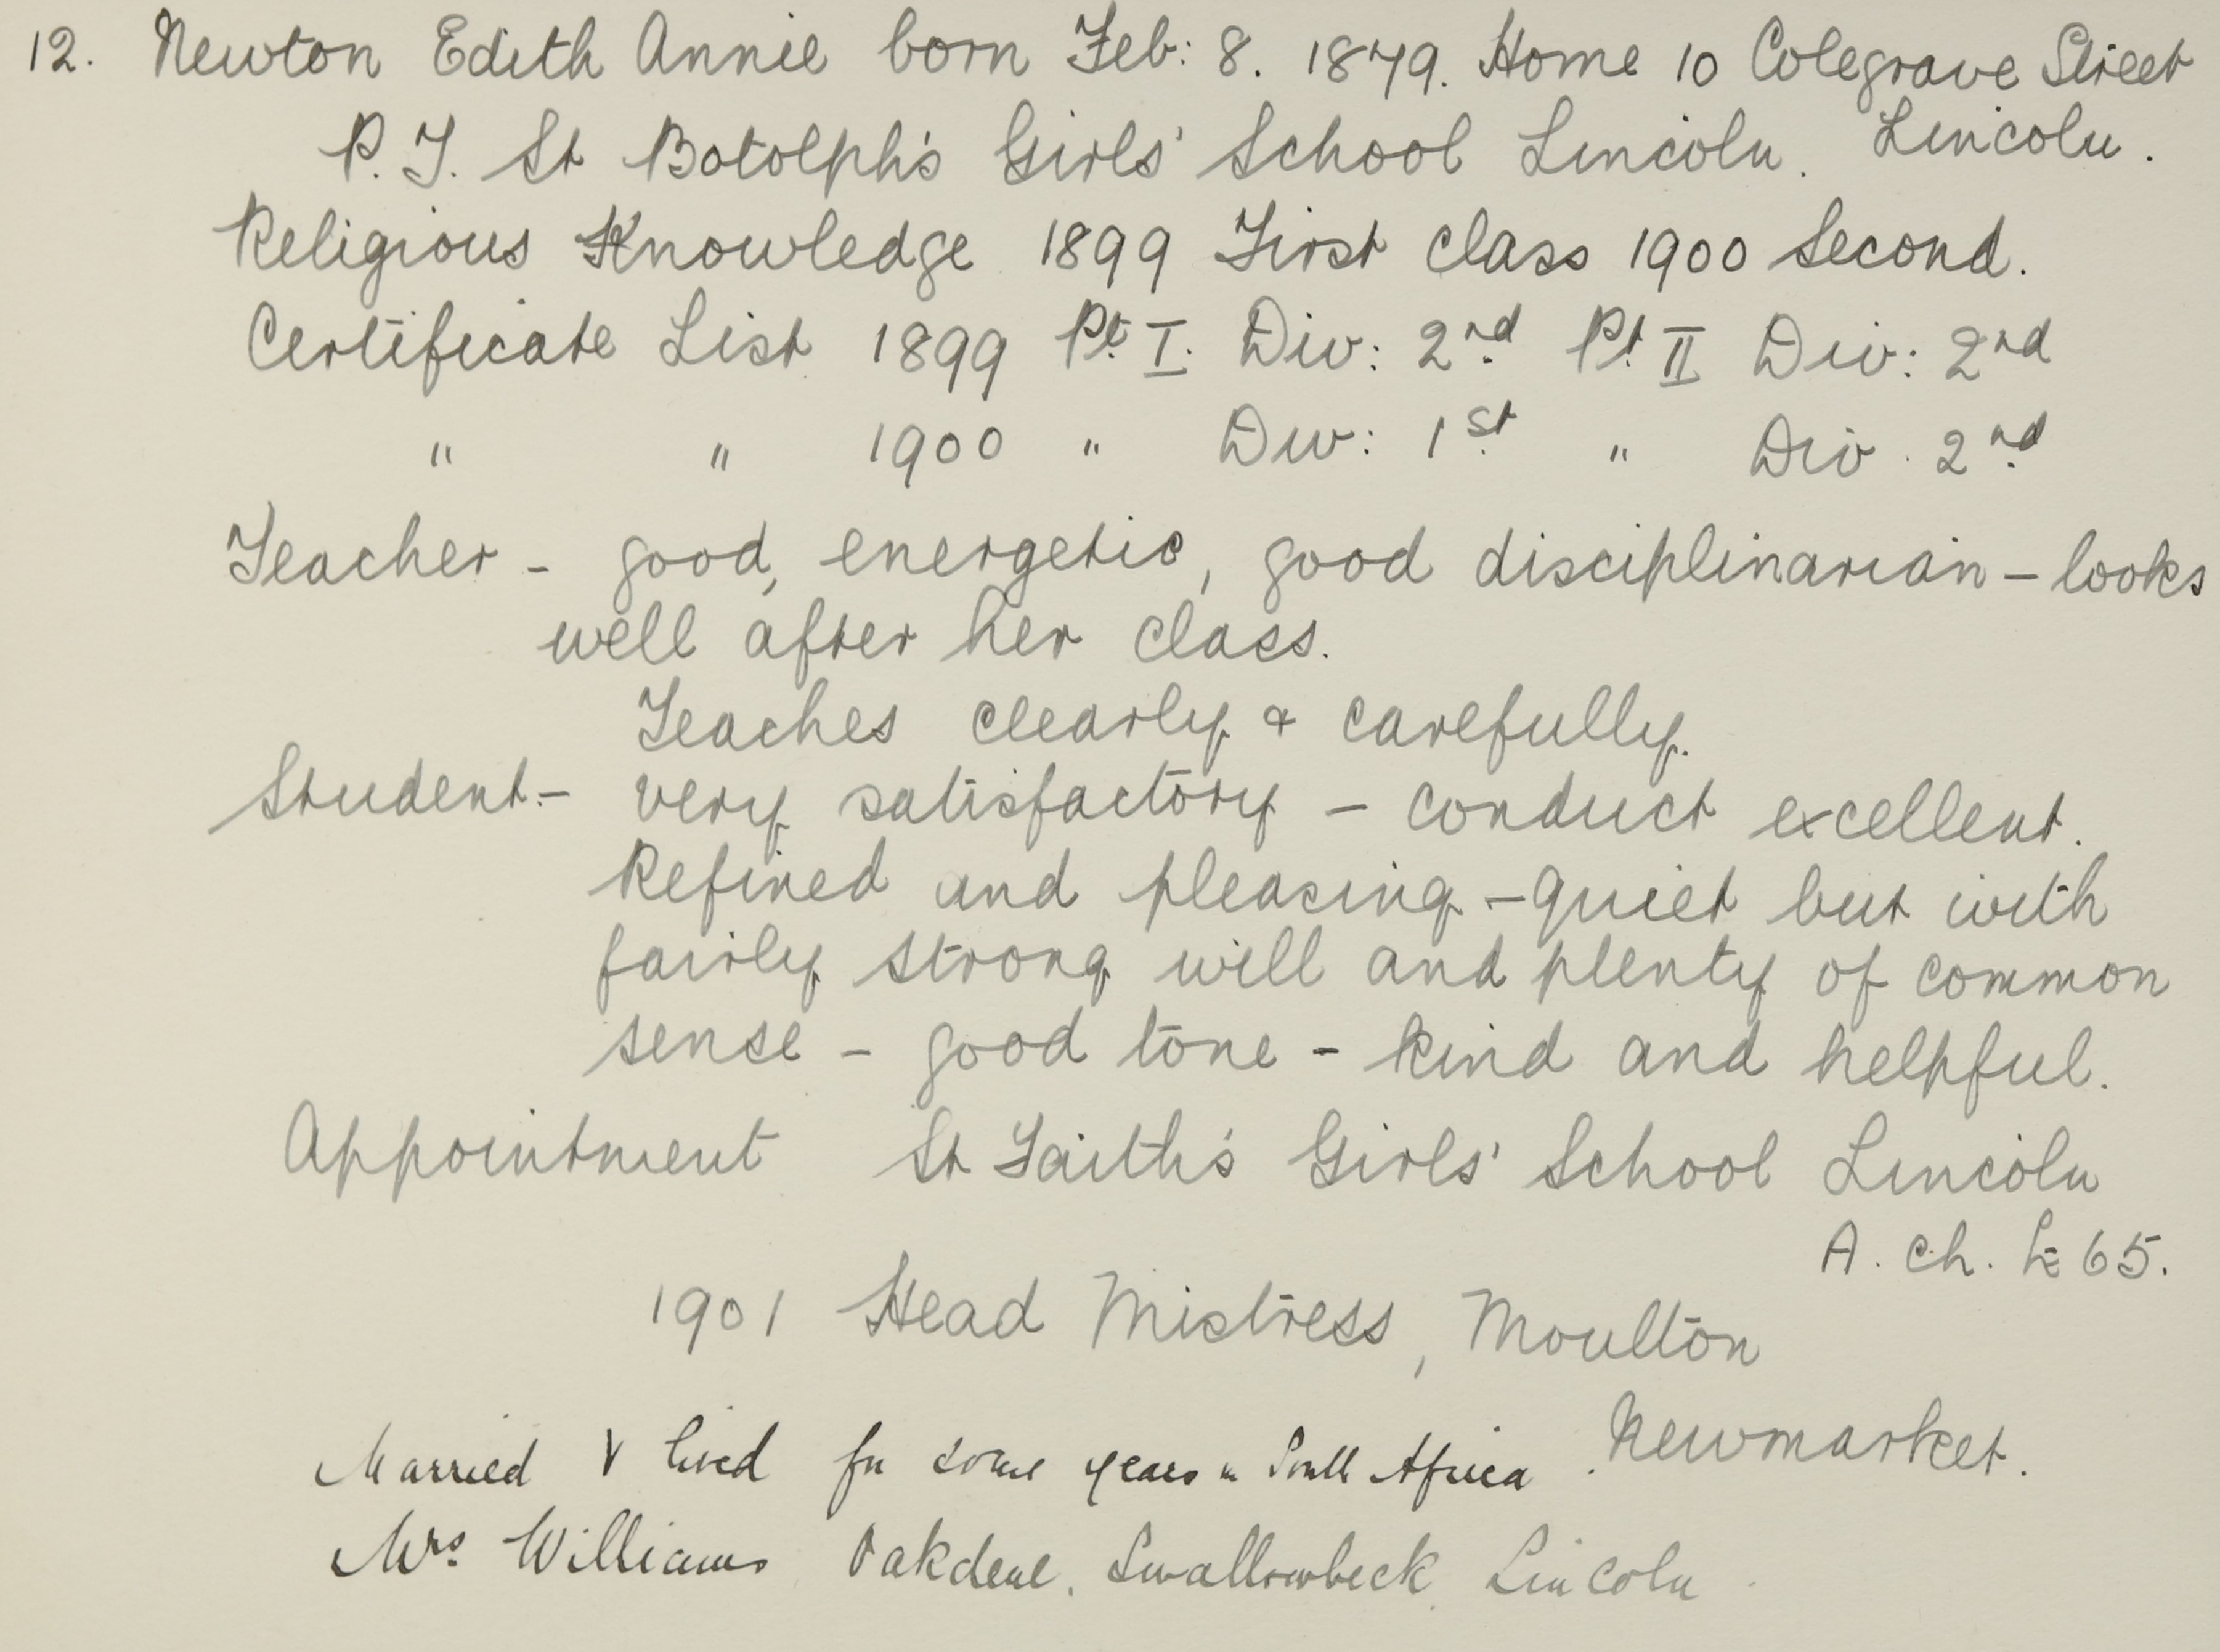 12. Newton Edith Annie born Feb: 8. 1879. Home 10 Colegrave Street
P.T. St Botolph's Girls' School Lincoln. Lincoln.
Religious Knowledge 1899 First class 1900 Second.
Certificate List 1899 Pt. I. Div: 2nd Pt. II Div: 2nd
" " 1900 " Div: 1st " Div. 2nd
Teacher - good, energetic, good disciplinarian - looks
well after her class.
Teaches clearly & carefully.
Student - very satisfactory - conduct excellent.
Refined and pleasing - quiet but with
fairly strong will and plenty of common
sense - good tone - kind and helpful.
Appointment St Faith's Girls' School Lincoln
A. Ch. £65.
1901 Head Mistress, Moulton
Newmarket.
Married & lived for some years in South Africa.
Mrs Williams Oakdene, Swallowbeck, Lincoln